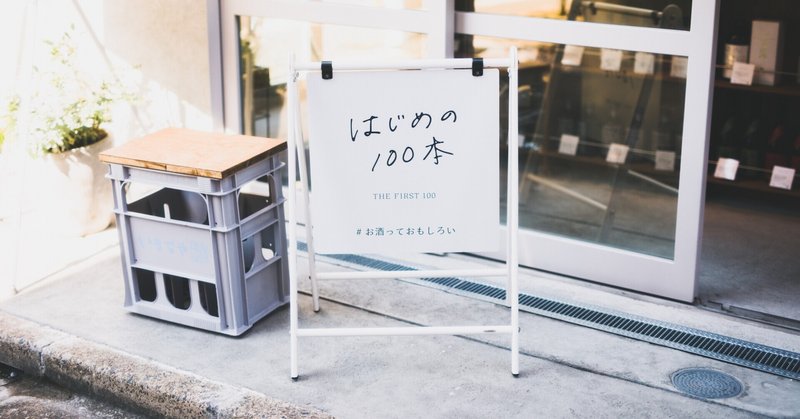 はじめの
100本
THE FIRST 100
#お酒っておもしろい